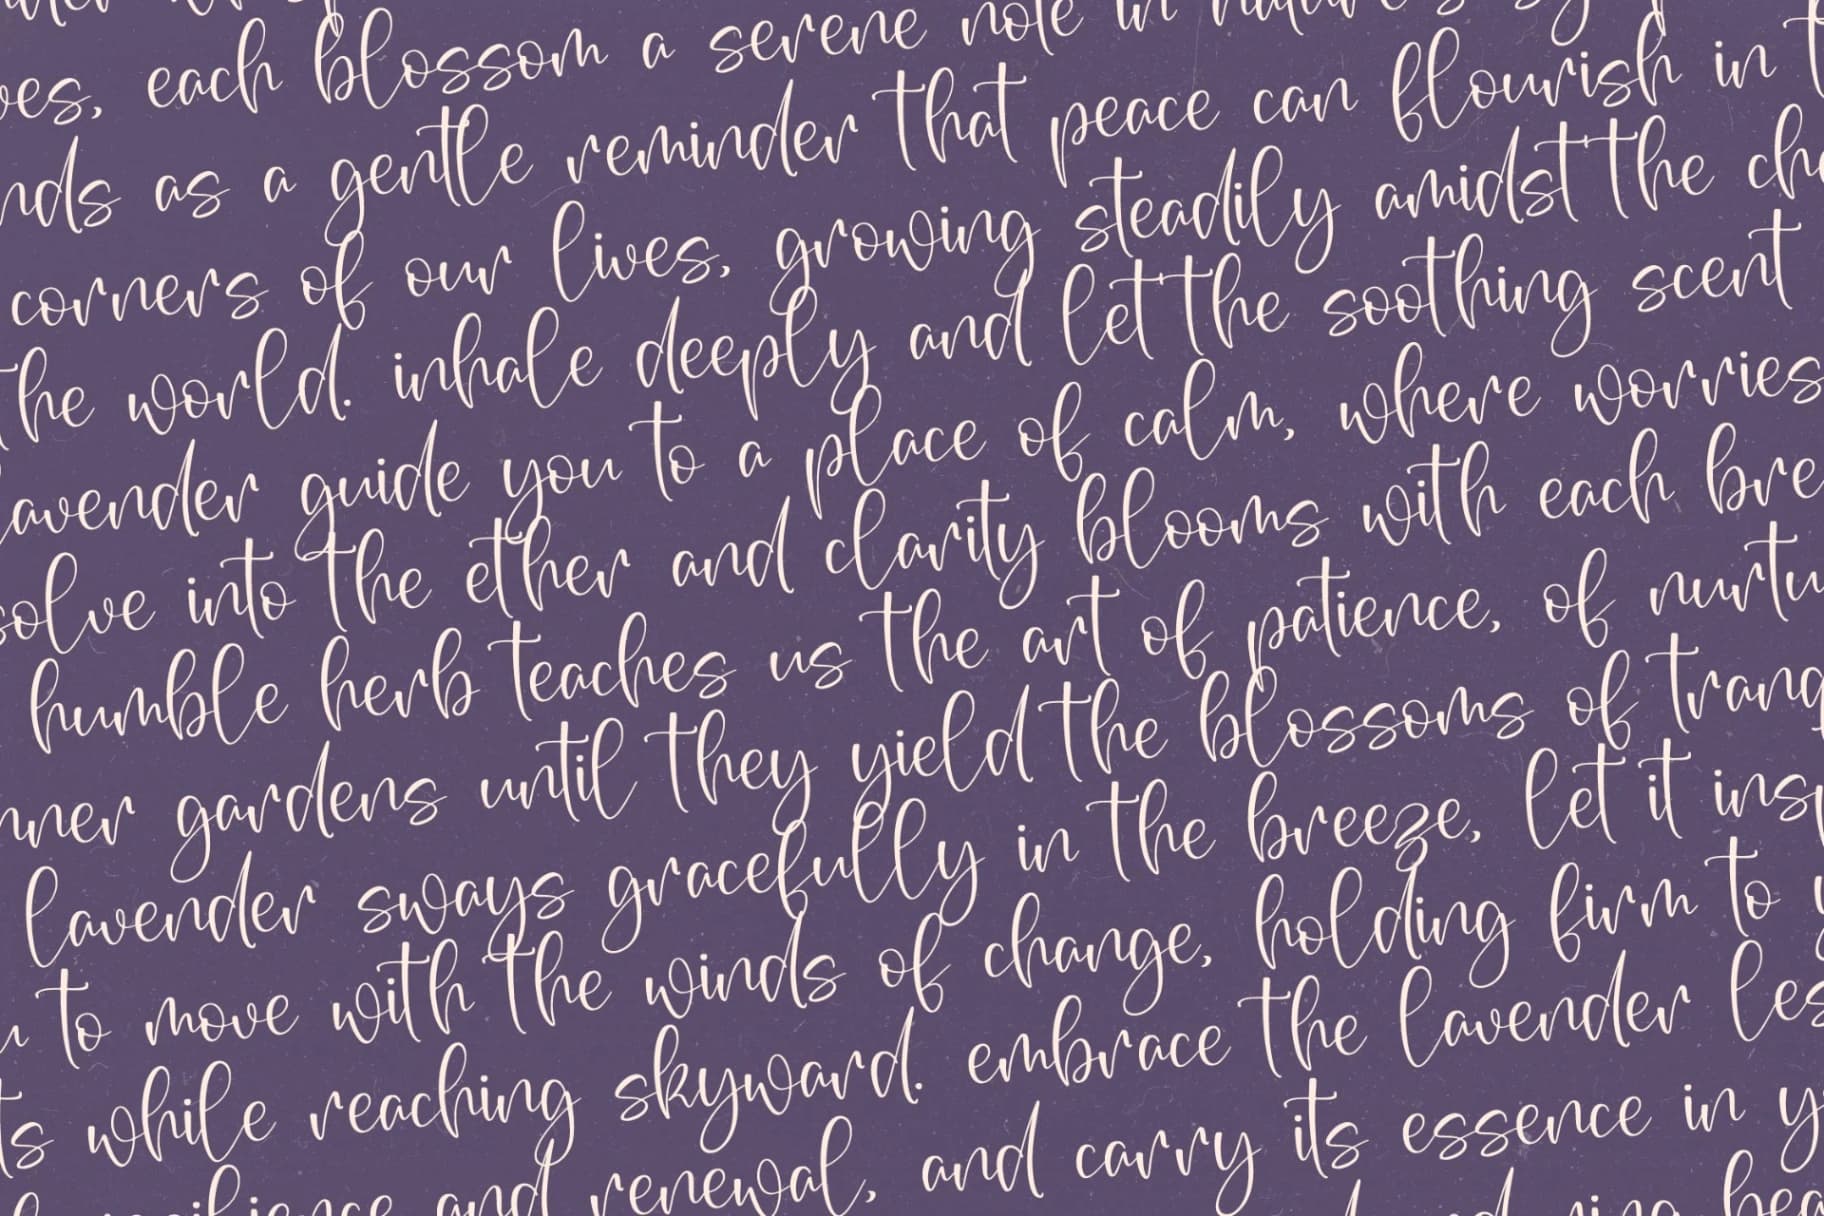 each blossom a serene note in nature's
as a gentle reminder that peace can flourish in
corners of our lives, growing steadily amidst the
the world. inhale deeply and let the soothing scent
lavender guide you to a place of calm, where worries
solve into the ether and clarity blooms with each bre
humble herb teaches us the art of patience, of nurtu
nner gardens until they yield the blossoms of tranq
lavender sways gracefully in the breeze, let it insp
to move with the winds of change, holding firm to y
ts while reaching skyward. embrace the lavender les
resilience and renewal, and carry its essence in y